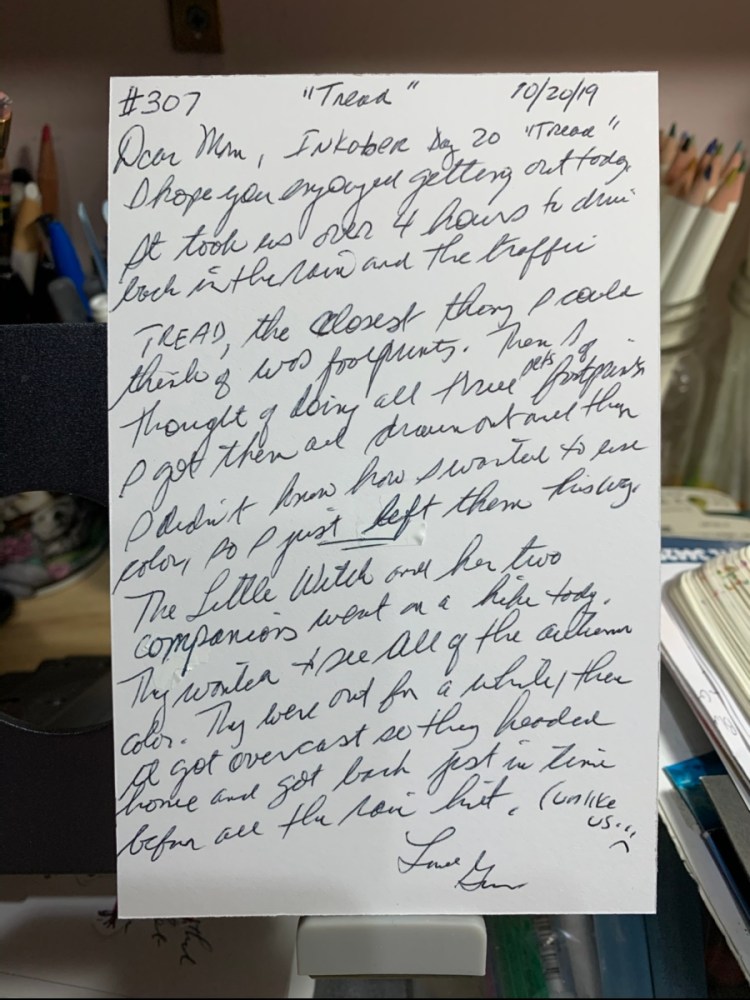 #307 "Tread" 10/20/19
Dear Mom, INKtober Day 20 "Tread"
I hope you enjoyed getting out today.
It took us over 4 hours to drive
back in the rain and the traffic
TREAD, the closest thing I could
think of was footprints. Then I
thought of doing all three pets footprints
I got them all drawn out and then
I didn't know how I wanted to use
color, so I just left them this way.
The Little Witch and her two
companions went on a hike today.
They wanted to see All of the autumn
color. They were out for a while, then
it got overcast so they headed
home and got back just in time
before all the rain hit. (unlike
us...
Love